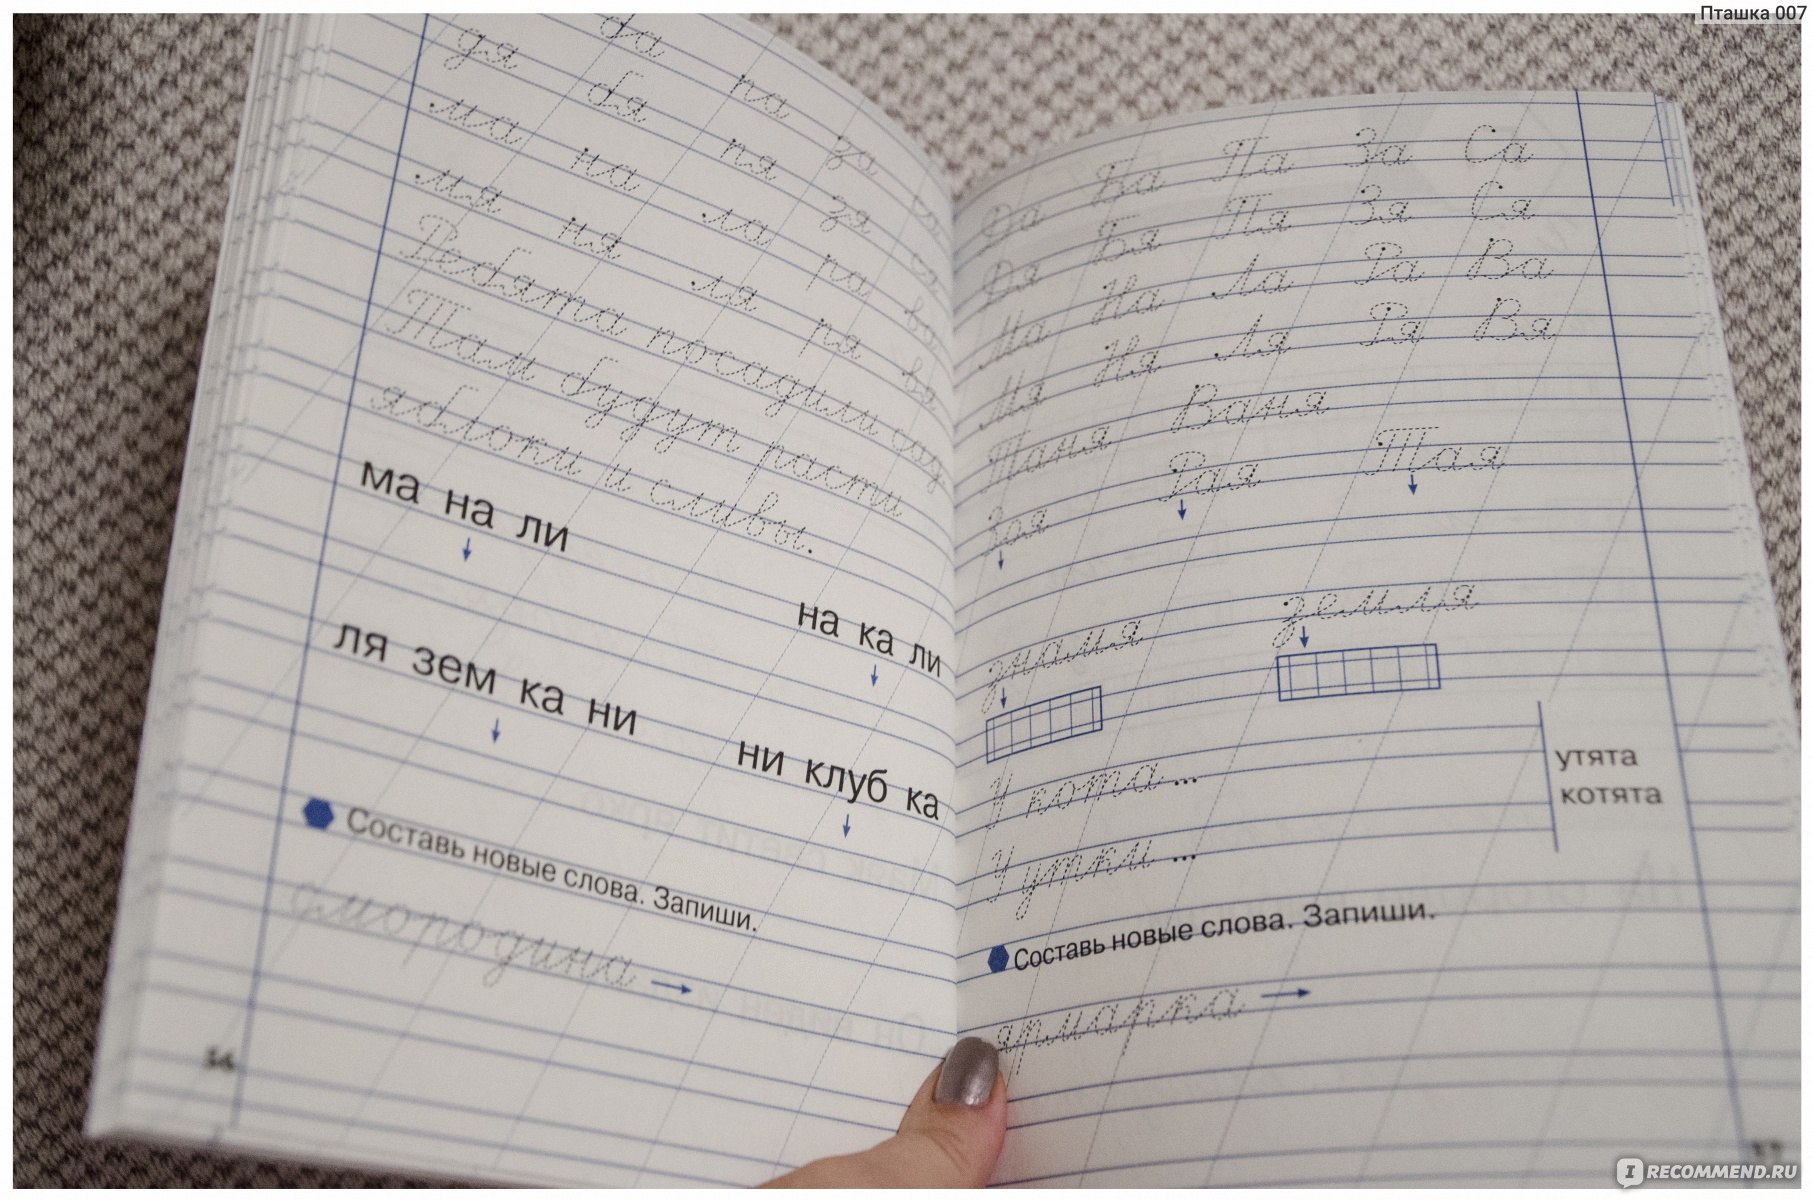 Пташка 007
да па за
дя бя пя зя ся
ма на ла ра ва
мя ня ля ря вя
Ребята посадили сад.
Там будут расти
яблони и сливы.
ма на ли
на ка ли
ля зем ка ни
ни клуб ка
Составь новые слова. Запиши.
смородина
Да Ба Па За Са
Дя Бя Пя Зя Ся
Ма На Ла Ра Ва
Мя Ня Ля Ря Вя
Таня Ваня
Зоя Рая Тая
знамя земля
У кота ...
У утки ...
утята
котята
Составь новые слова. Запиши.
ярмарка
IRECOMMEND.RU